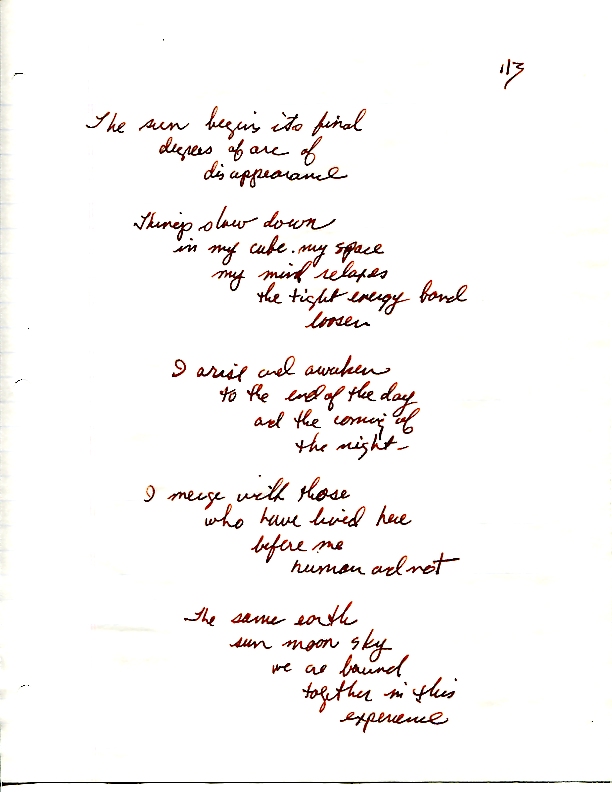 113
The sun begins its final
degrees of arc of
disappearance
Things slow down
in my cube. my space
my mind relaxes
the tight energy band
loosen
I arise and awaken
to the end of the day
and the coming of
the night -
I merge with those
who have lived here
before me
human and not
The same earth
sun moon sky
we are bound
together in this
experience